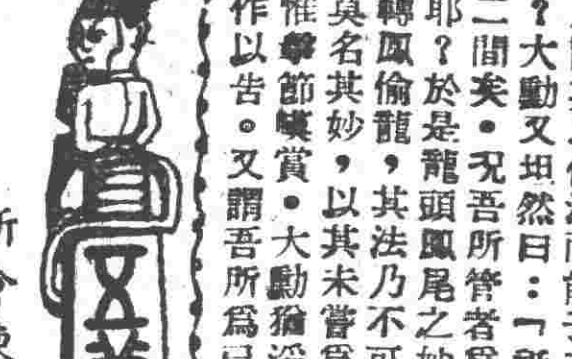 ？大勳又坦然曰：「
二間矣。況吾所管者
耶？於是龍頭鳳尾之妙
轉鳳偷龍，其法乃不可
莫名其妙，以其未嘗
惟擊節嘆賞。大勳猶
作以告。又謂吾所爲
五